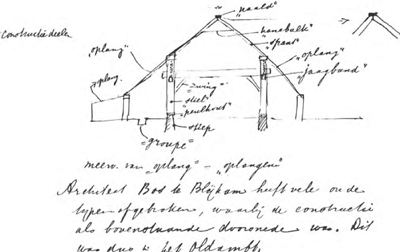 „naald"
Constructiedeelen
„hanebalk"
„spant"
„oplang"
„oplang"
„jaagband"
„oplag.
„zwing"
„stiel"
„peulhout"
„stiep
„groupe"
meerv. van „oplang" – „oplangen"
Architect Bos te Blijham heeft vele oude
typen afgebroken, waarbij de constructie
als bovenstaande doorsnede was. Dit
was dus in het Oldambt.